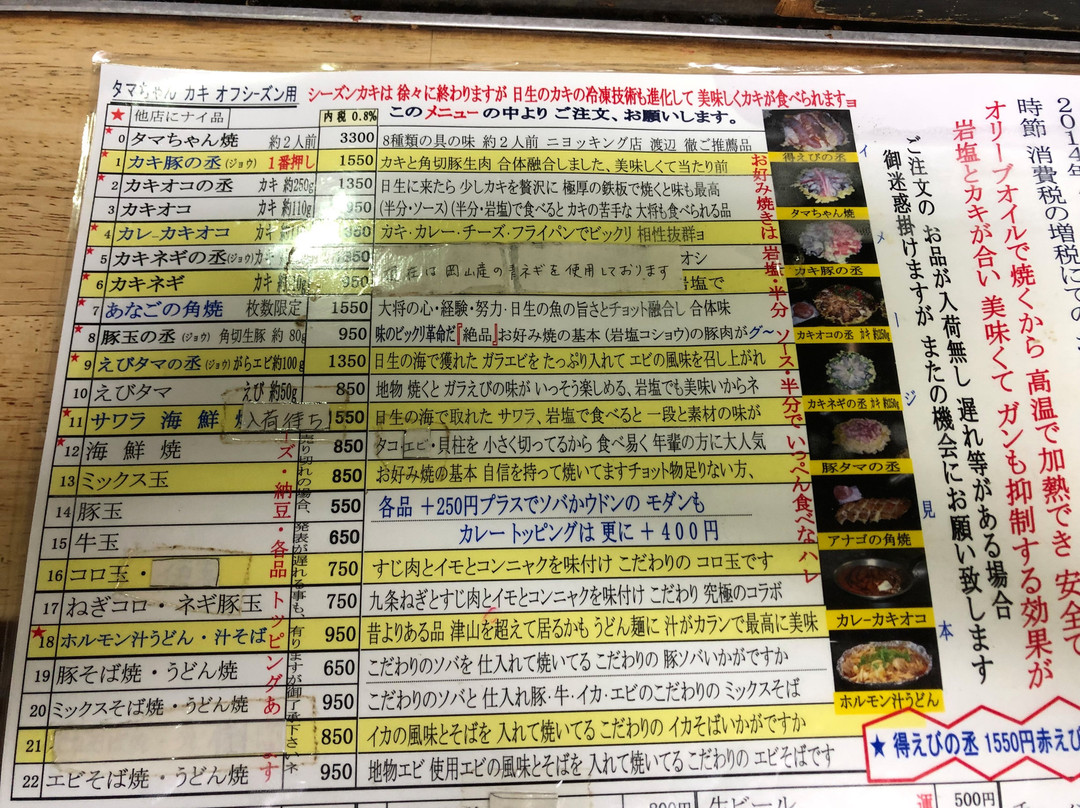 タマちゃん カキ オフシーズン用
シーズンカキは 徐々に終わりますが 日生のカキの冷凍技術も進化して 美味しくカキが食べられますヨ
★ 他店にナイ品 内税 0.8% このメニューの中より ご注文、お願いします。
★0 タマちゃん焼 約2人前 3300 8種類の具の味 約2人前 ニヨッキング店 渡辺 徹ご推薦品
★1 カキ豚の丞(ジョウ) 1番押し 1550 カキと角切豚生肉 合体融合しました、美味しくて当たり前
★2 カキオコの丞 カキ 約250g 1350 日生に来たら 少しカキを贅沢に 極厚の鉄板で焼くと味も最高
3 カキオコ カキ 約110g 950 (半分・ソース)(半分・岩塩)で食べると カキの苦手な 大将も食べられる品
★4 カレーカキオコ カキ 950 カキ・カレー・チーズ・フライパンでビックリ 相性抜群ョ
★5 カキネギの丞(ジョウ) カキ 1350 オシ
現在は岡山産の青ネギを使用しております
★6 カキネギ カキ 950 岩塩で
★7 あなごの角焼 枚数限定 1550 大将の心・経験・努力・日生の魚の旨さとチョット融合し 合体味
★8 豚玉の丞(ジョウ) 角切生豚 約80g 950 味のビックリ革命だ『絶品』お好み焼の基本(岩塩コショウ)の豚肉がグ〜
★9 えびタマの丞(ジョウ)がらエビ約100g 1350 日生の海で獲れた ガラエビを たっぷり入れて エビの風味を召し上がれ
10 えびタマ えび 約50g 850 地物 焼くと ガラえびの味が いっそう楽しめる、岩塩でも美味いからネ
★11 サワラ 海鮮 入荷待ち 1550 日生の海で取れた サワラ、岩塩で食べると 一段と素材の味が
★12 海鮮焼 850 タコエビ・貝柱を 小さく切ってるから 食べ易く 年輩の方に大人気
13 ミックス玉 850 お好み焼の基本 自信を持って焼いてますチョット物足りない方、
14 豚玉 550 各品 +250円プラスでソバかウドンの モダンも
15 牛玉 650 カレートッピングは 更に +400円
16 コロ玉・ 750 すじ肉とイモとコンニャクを味付け こだわりの コロ玉です
17 ねぎコロ・ネギ豚玉 750 九条ねぎとすじ肉とイモとコンニャクを味付け こだわり 究極のコラボ
★18 ホルモン汁うどん・汁そば 950 昔よりある品 津山を超えて居るかも うどん麺に 汁がカランで最高に美味
19 豚そば焼・うどん焼 650 こだわりのソバを 仕入れて焼いてる こだわりの 豚ソバいかがですか
20 ミックスそば焼・うどん焼 950 こだわりのソバと 仕入れ豚・牛・イカ・エビのこだわりの ミックスそば
21 850 イカの風味とそばを 入れて焼いてる こだわりの イカそばいかがですか
22 エビそば焼・うどん焼 950 地物エビ 使用エビの風味とそばを 入れて焼いてる こだわりの エビそばです
ーズ・納豆・各品トッピングあります
売り切れの場合、発表が遅れる事も、有りますが御了承下さいネ
お好み焼きは 岩塩・半分 ソース・半分で いっぺん食べなハレ
イメージ見本
得えびの丞
タマちゃん焼
カキ豚の丞
カキオコの丞
カキネギの丞
豚タマの丞
アナゴの角焼
カレーカキオコ
ホルモン汁うどん
2014年
時節 消費税の増税にての
オリーブオイルで焼くから 高温で加熱でき 安全で
岩塩とカキが合い 美味くて ガンも抑制する効果が
ご注文の お品が入荷無し 遅れ等がある場合
御迷惑掛けますが またの機会にお願い致します
★ 得えびの丞 1550円赤えび
生ビール
500円